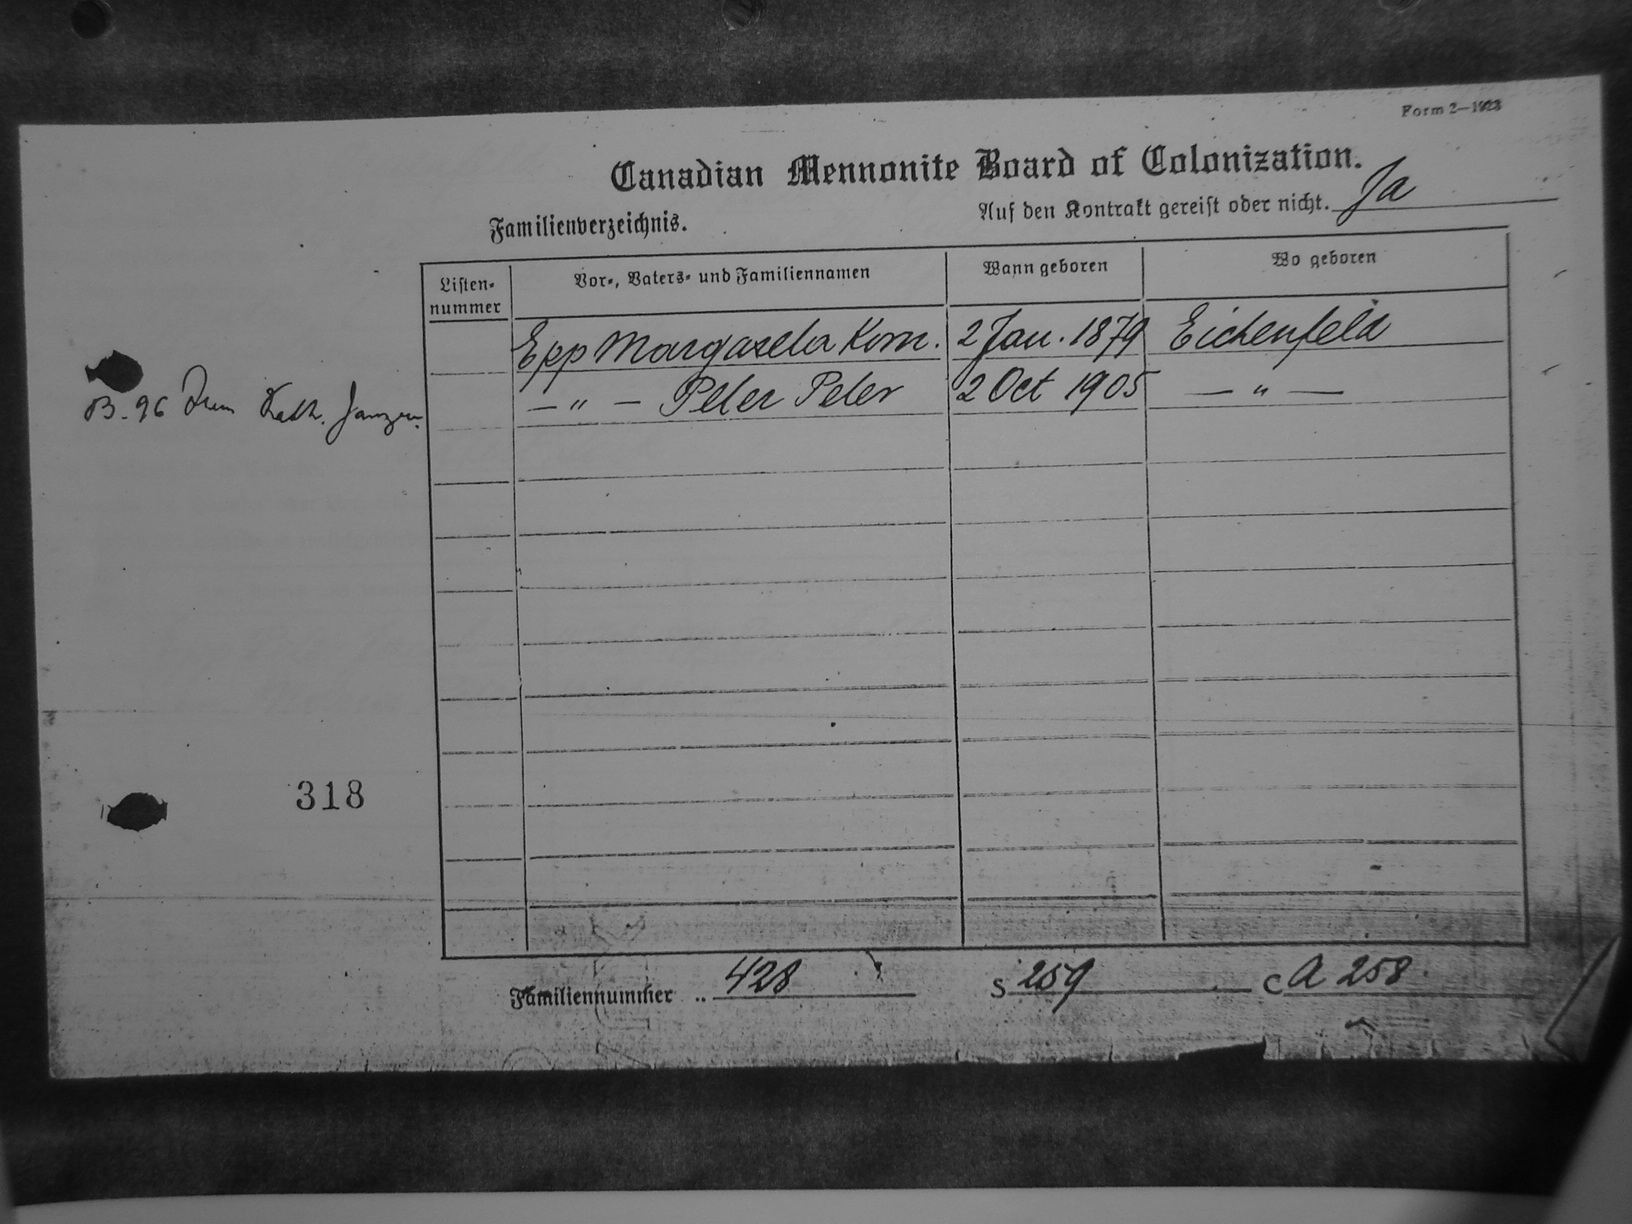 Form 2—1923
Canadian Mennonite Board of Colonization.
Familienverzeichnis.
Auf den Kontrakt gereist oder nicht. Ja
Listen-
nummer
Vor-, Vaters- und Familiennamen
Wann geboren
Wo geboren
Epp Margareta Korn. 2 Jan. 1879 Eichenfeld
— " — Peter Peter 2 Oct 1905 — " —
B-96 Kath. Janzen
318
Familiennummer .. 428
S 259
C A 258